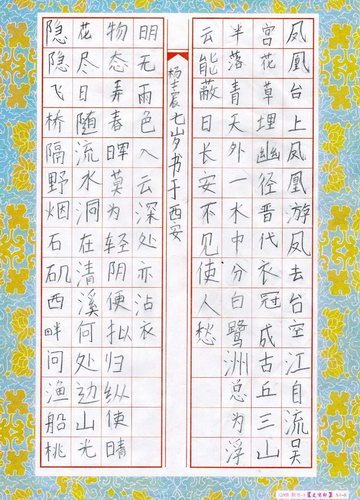 凤凰台上凤凰游凤去台空江自流吴
宫花草埋幽径晋代衣冠成古丘三山
半落青天外一水中分白鹭洲总为浮
云能蔽日长安不见使人愁
隐隐飞桥隔野烟石矶西畔问渔船桃
花尽日随流水洞在清溪何处边山光
物态弄春晖莫为轻阴便拟归纵使晴
明无雨色入云深处亦沾衣
杨志震七岁书于西安